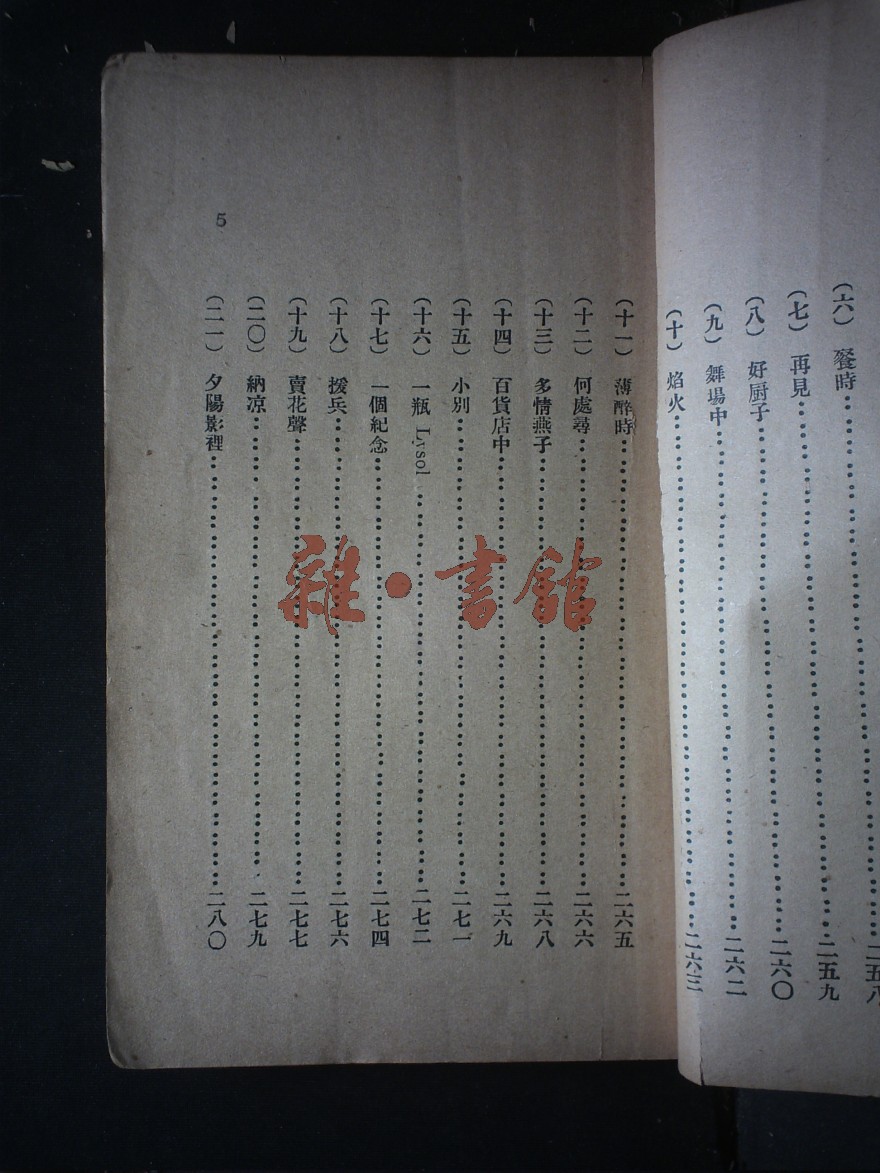 (六)餐時……二五八
(七)再見……二五九
(八)好厨子……二六〇
(九)舞場中……二六二
(十)焰火……二六三
(十一)薄醉時……二六五
(十二)何處尋……二六六
(十三)多情燕子……二六八
(十四)百貨店中……二六九
(十五)小別……二七一
(十六)一瓶 Lysol……二七二
(十七)一個紀念……二七四
(十八)援兵……二七六
(十九)賣花聲……二七七
(二〇)納凉……二七九
(二一)夕陽影裡……二八〇
5
雜·書館